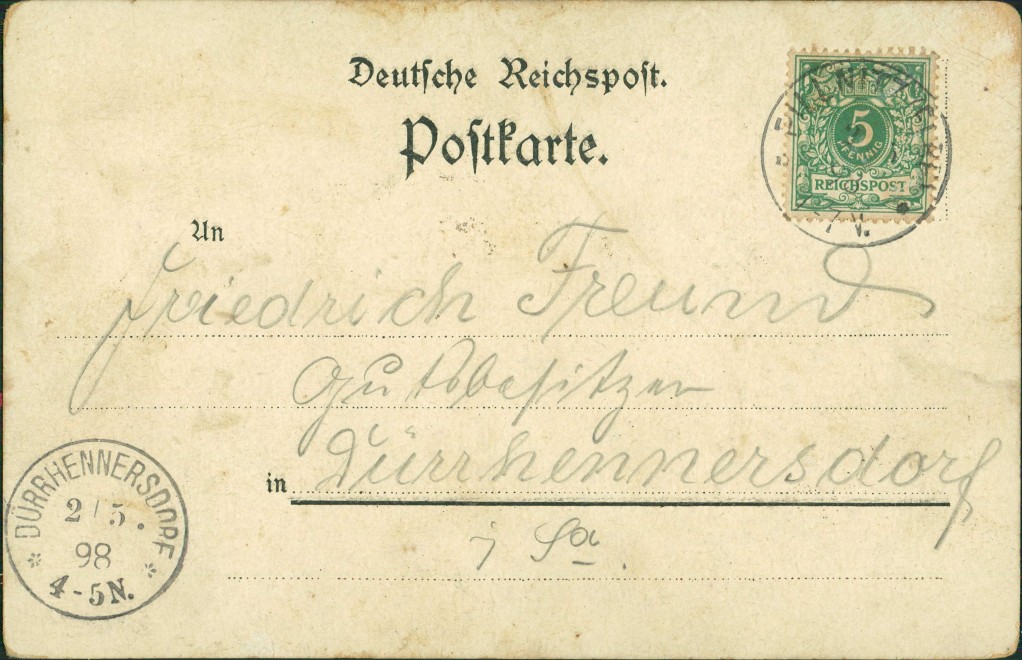 Deutsche Reichspost.
Postkarte.
5
PFENNIG
REICHSPOST
7-V.
An
Friedrich Freund
Gutsbesitzer
in Dürrhennersdorf
i Sa.
DÜRRHENNERSDORF
2/5.
98
4-5N.